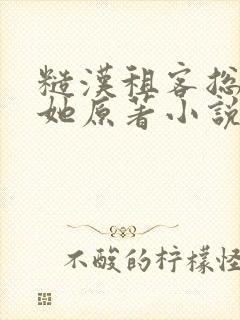 糙漢租客
她原著小說
不酸的柠檬怪